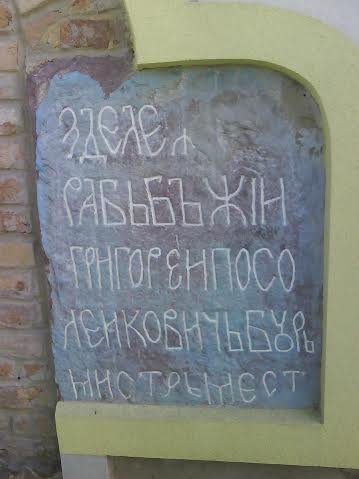 ЗДЕЛЕ А
РАБЬБЪ ЖІН
ГРИГОРЕИ ПОСО
ЛЕИКОВИЧЬ БУРЪ
МИСТРЫ МЕСТ